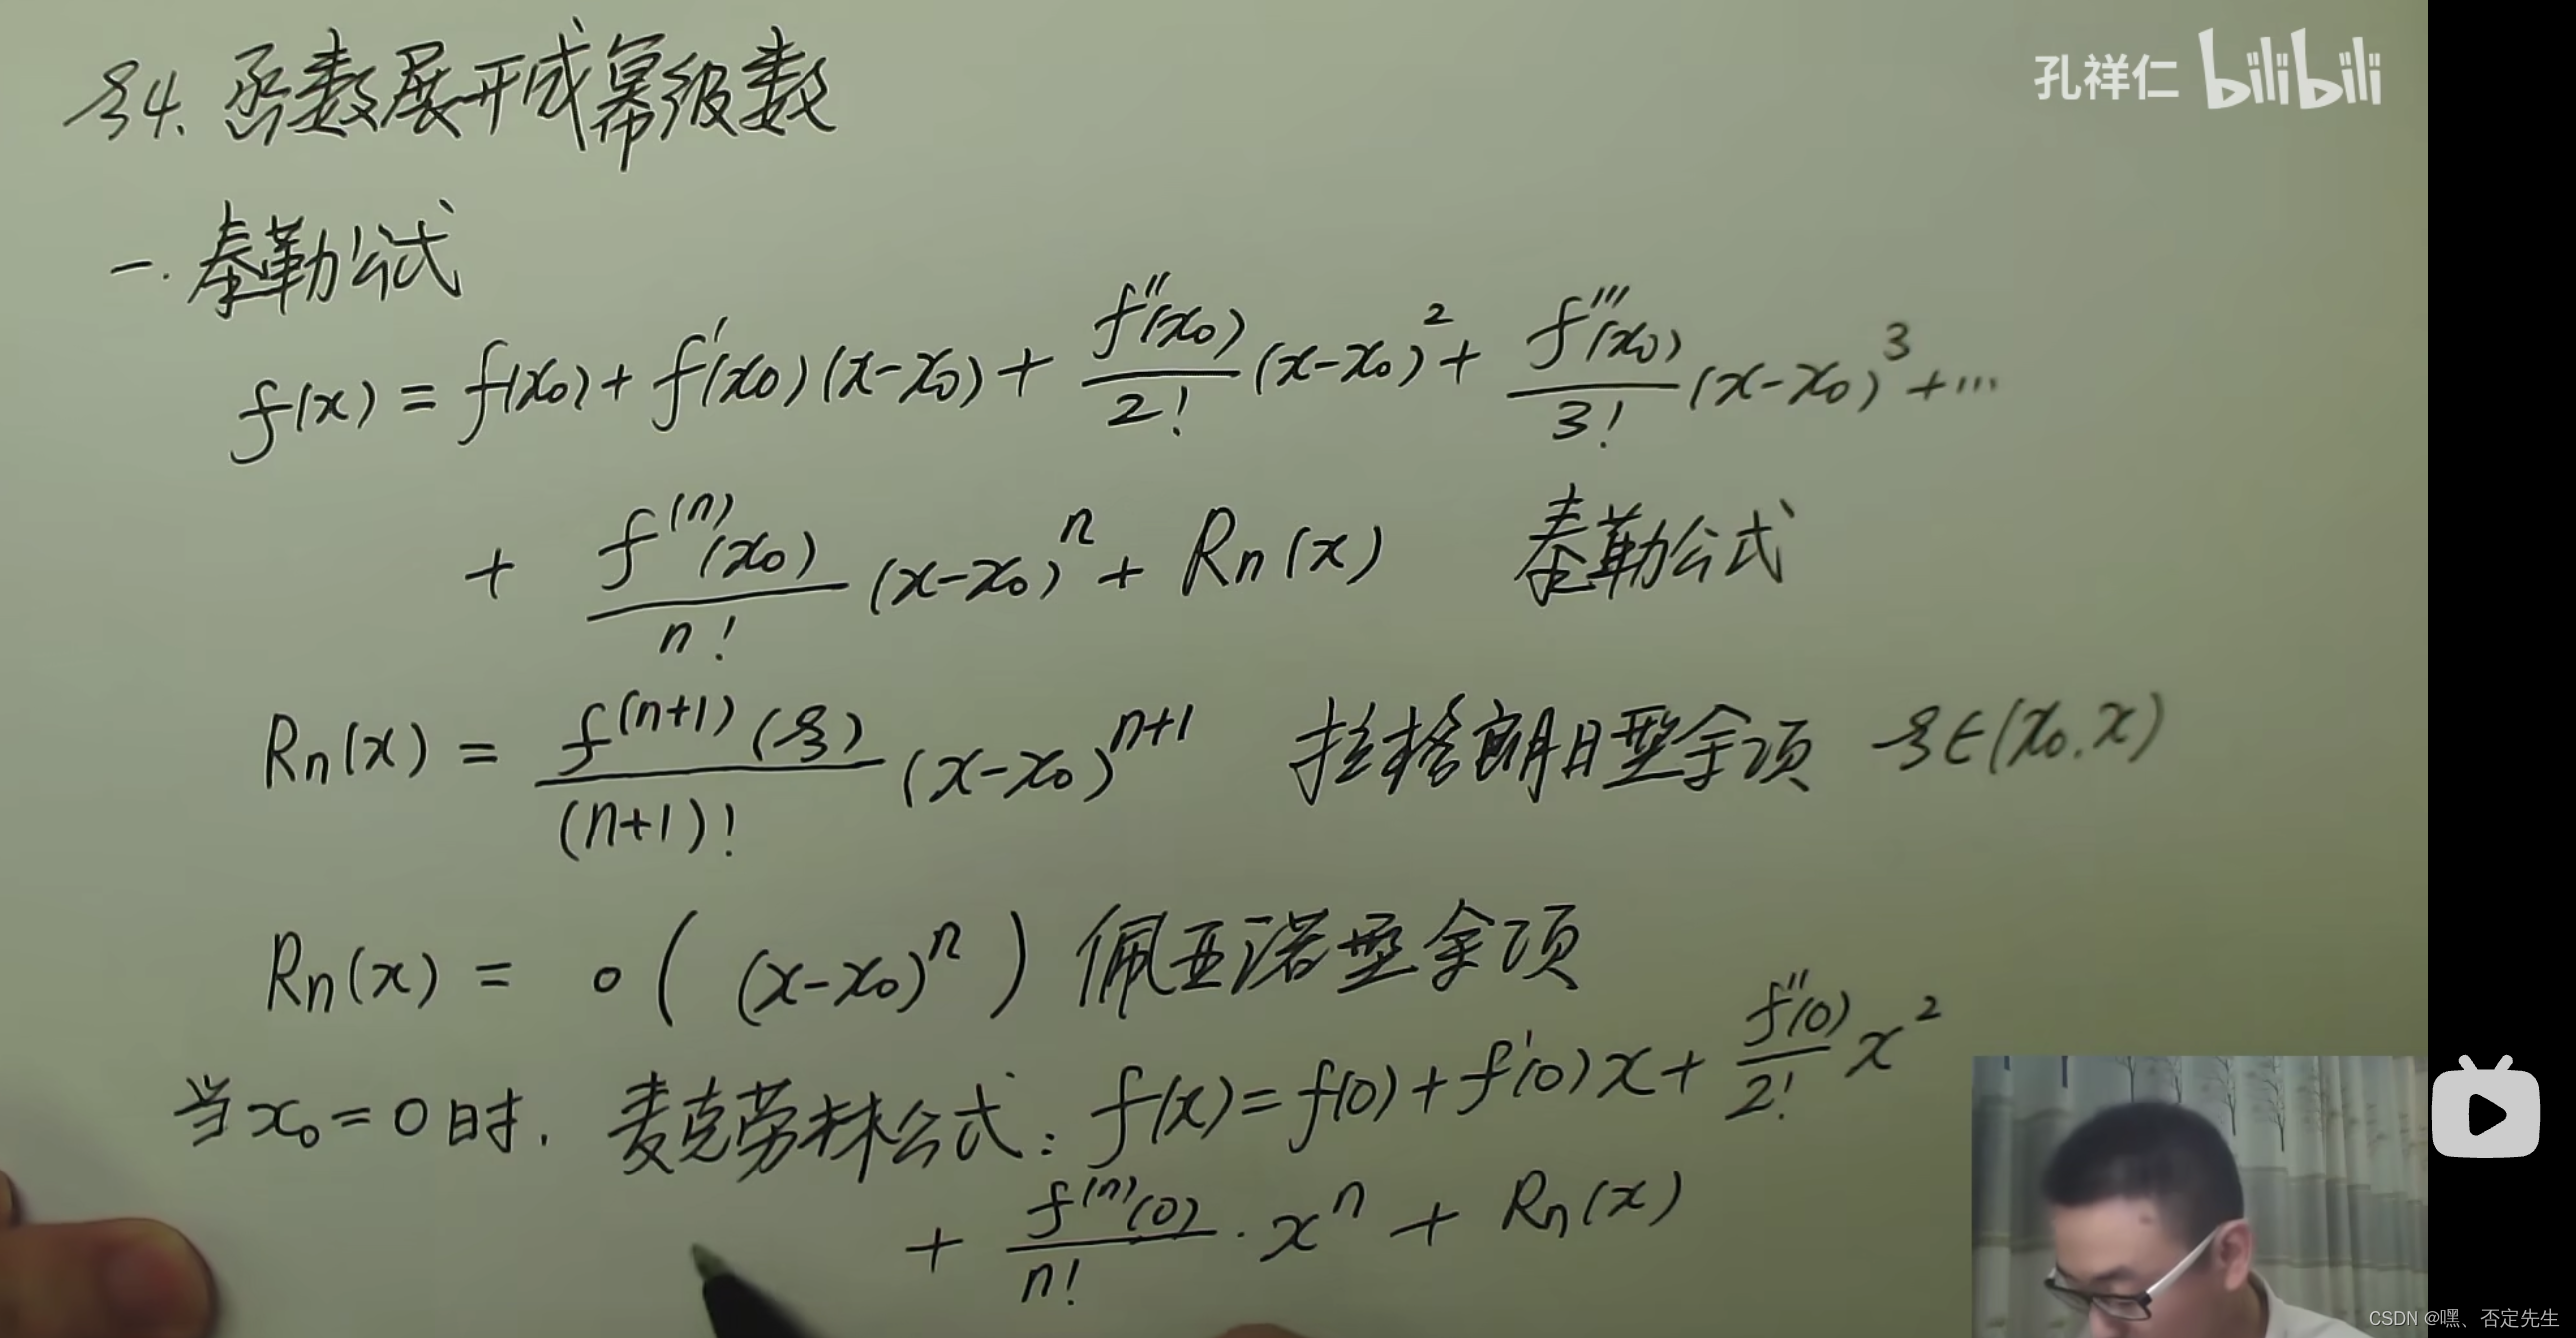 §4. 函数展开成幂级数
孔祥仁 bilibili
一. 泰勒公式
f(x) = f(x₀) + f'(x₀)(x-x₀) + f''(x₀)/2! (x-x₀)² + f'''(x₀)/3! (x-x₀)³ + ···
+ f⁽ⁿ⁾(x₀)/n! (x-x₀)ⁿ + Rn(x) 泰勒公式
Rn(x) = f⁽ⁿ⁺¹⁾(ξ)/(n+1)! (x-x₀)ⁿ⁺¹ 拉格朗日型余项 ξ∈(x₀.x)
Rn(x) = o( (x-x₀)ⁿ ) 佩亚诺型余项
当 x₀=0 时. 麦克劳林公式: f(x)=f(0)+f'(0)x+ f''(0)/2! x²
+ f⁽ⁿ⁾(0)/n! · xⁿ + Rn(x)
CSDN @嘿、否定先生